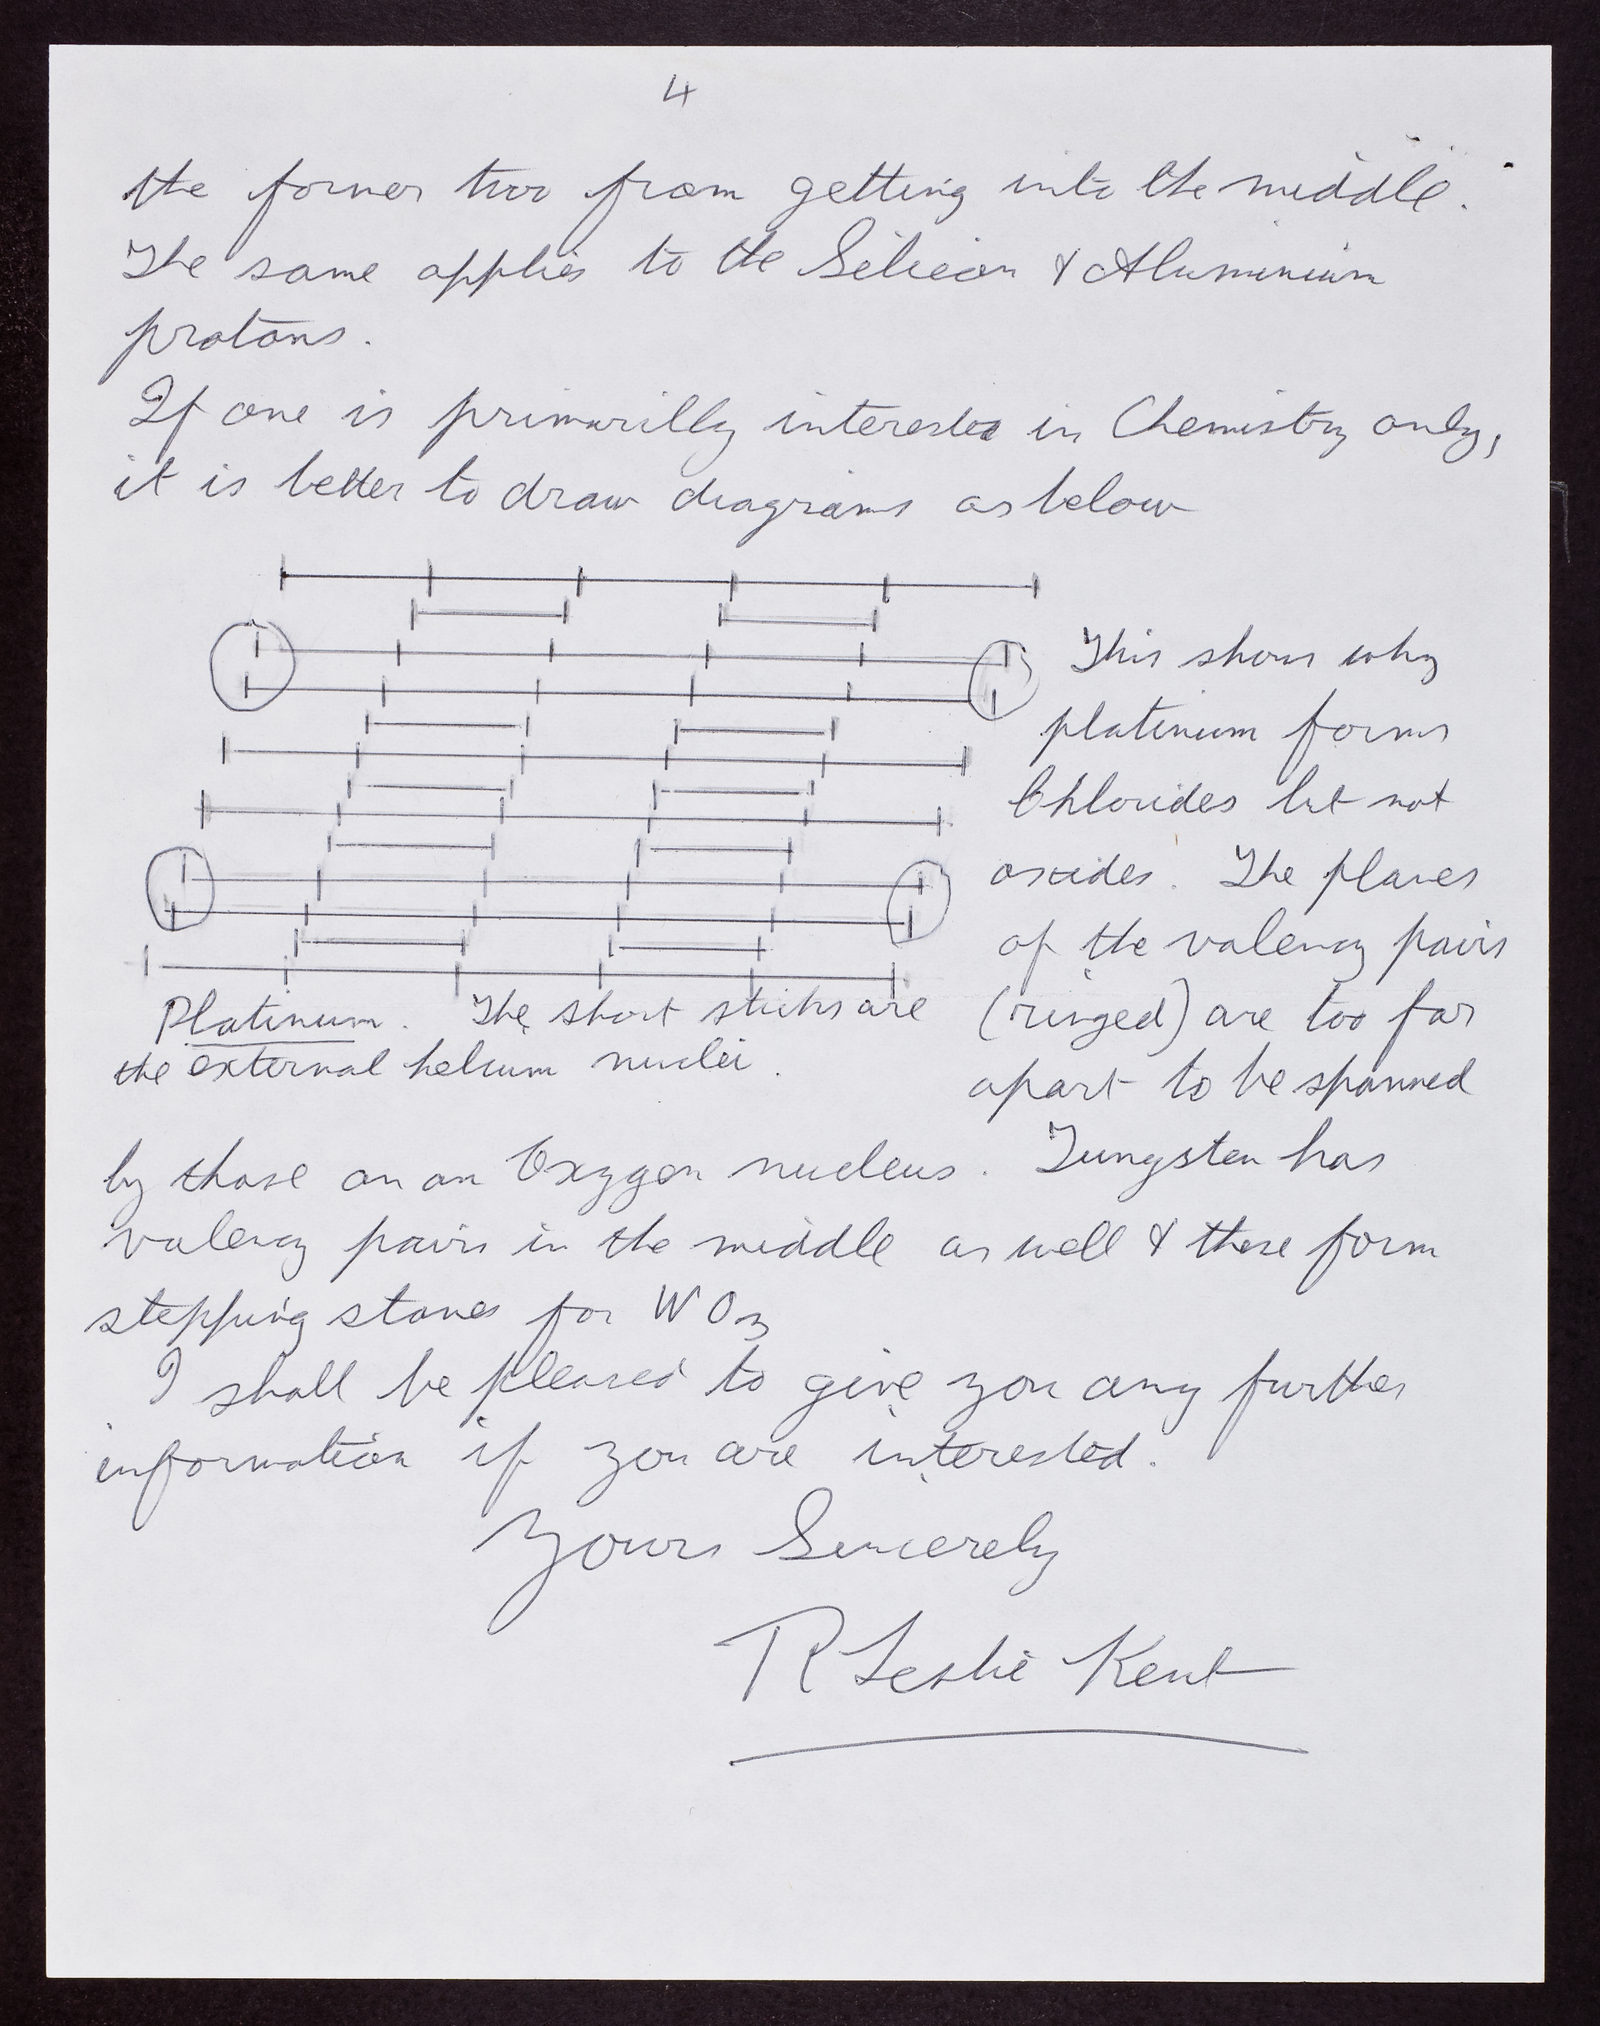 4
the former two from getting into the middle.
The same applies to the Silicon & Aluminium
protons.
If one is primarilly interested in Chemistry only,
it is better to draw diagrams as below
This shows why
platinum forms
Chlorides but not
oxides. The planes
of the valency pairs
(ringed) are too far
apart to be spanned
Platinum. The short sticks are
the external helium nuclei.
by those on an Oxygen nucleus. Tungsten has
valency pairs in the middle as well & these form
stepping stones for WO3
I shall be pleased to give you any further
information if you are interested.
Yours Sincerely
R Leslie Kent